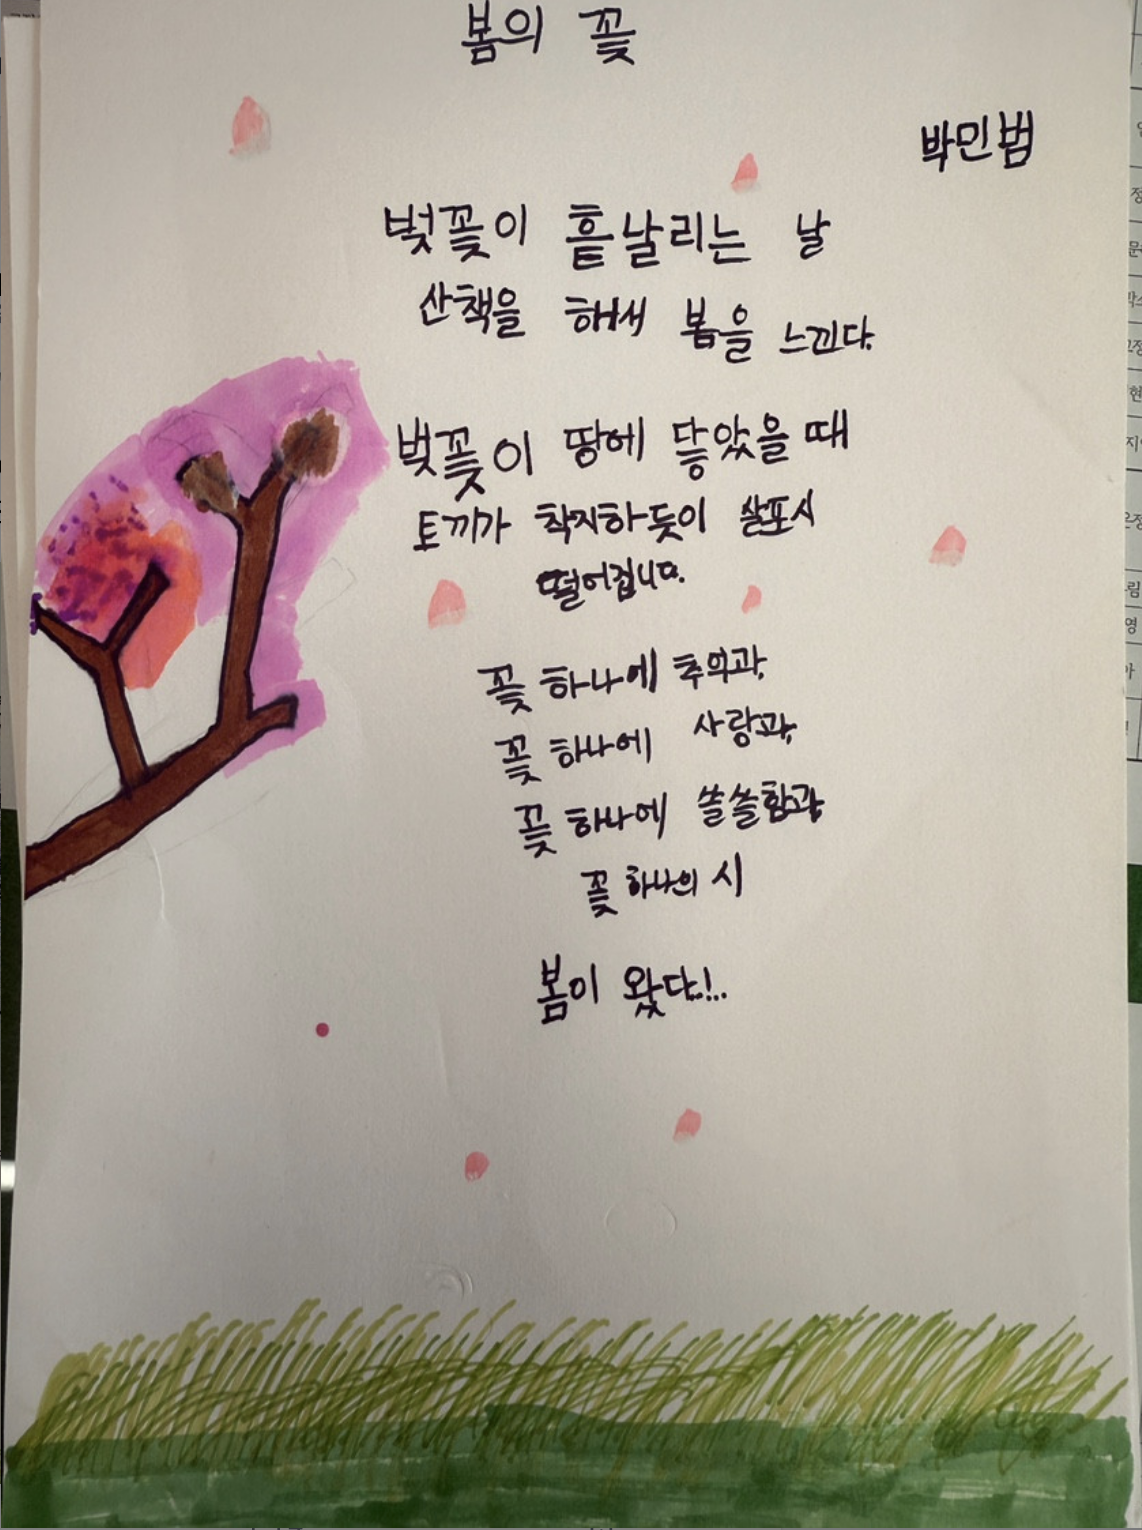 봄의 꽃
박민범
벚꽃이 흩날리는 날
산책을 해서 봄을 느낀다.
벚꽃이 땅에 닿았을 때
토끼가 착지하듯이 살포시
떨어집니다.
꽃 하나에 추억과,
꽃 하나에 사랑과,
꽃 하나에 쓸쓸함과,
꽃 하나의 시
봄이 왔다..!..